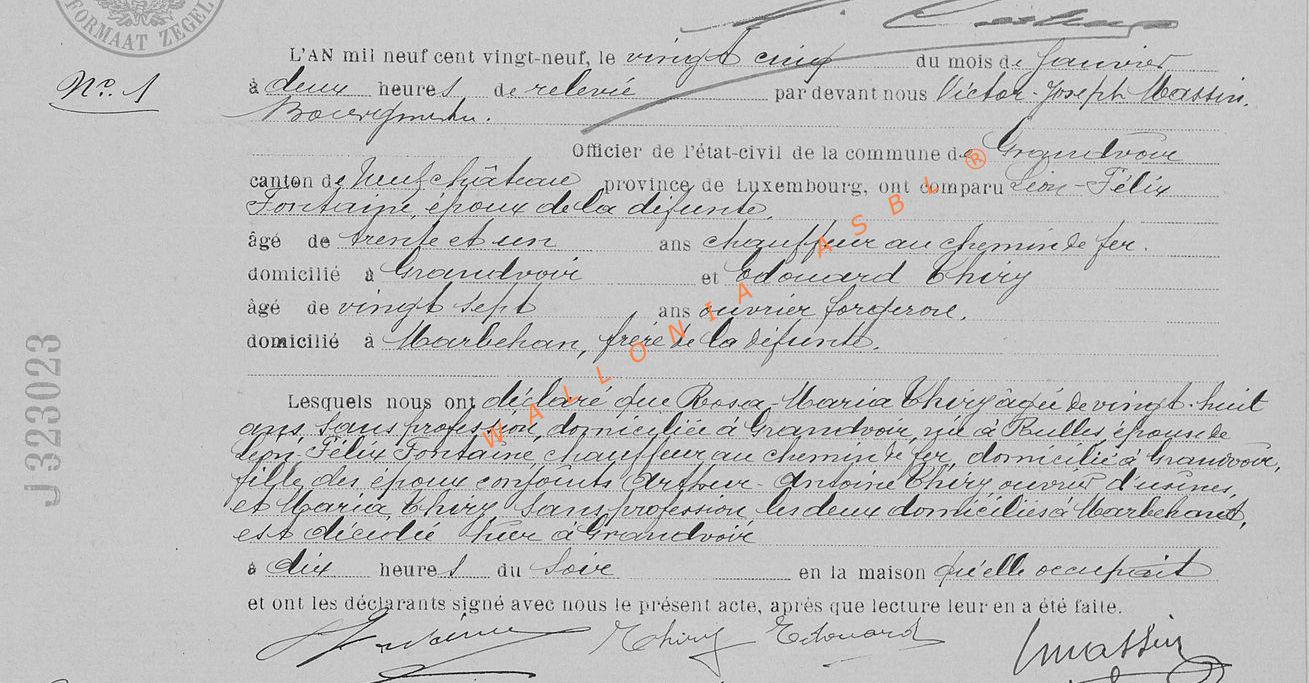 FORMAAT ZEGEL
L'AN mil neuf cent vingt-neuf, le vingt cinq du mois de Janvier
No. 1
à deux heures de relevée par devant nous Victor-Joseph Massin,
Bourgmestre.
Officier de l'état-civil de la commune de Grandvoir
canton de Neufchâteau province de Luxembourg, ont comparu Léon-Félix
Fontaine, époux de la défunte,
âgé de trente et un ans chauffeur au chemin de fer.
domicilié à Grandvoir et Edouard Thiry
âgé de vingt sept ans ouvrier forgeron,
domicilié à Marbehan, frère de la défunte.
Lesquels nous ont déclaré que Rosa Maria Thiry âgée de vingt-huit
ans, sans profession, domiciliée à Grandvoir, née à Rulles épouse de
Léon-Félix Fontaine, chauffeur au chemin de fer, domicilié à Grandvoir,
fille des époux conjoints Arthur-Antoine Thiry ouvrier d'usines,
et Maria Thiry sans profession, les deux domiciliés à Marbehan,
est décédée hier à Grandvoir
à dix heures du soir en la maison qu'elle occupait
et ont les déclarants signé avec nous le présent acte, après que lecture leur en a été faite.
Fontaine Thiry Edouard VMassin
J 323023
WALLONIA ASBL ®